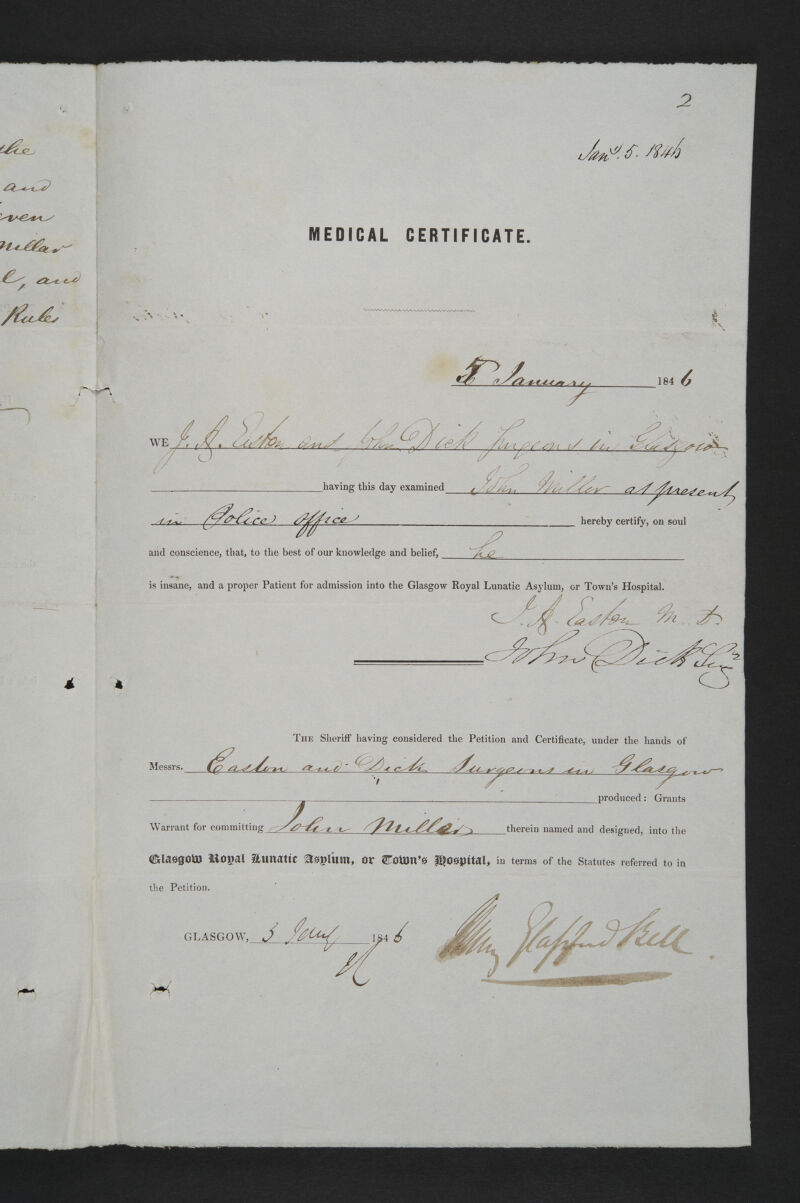 the
and
even
Millar
l, and
Rules
2
Jany. 5. 1846
MEDICAL CERTIFICATE.
5 January 1846
WE J. A. Easton and John Dick Surgeons in Glasgow
having this day examined John Millar at present
in Police office hereby certify, on soul
and conscience, that, to the best of our knowledge and belief, he
is insane, and a proper Patient for admission into the Glasgow Royal Lunatic Asylum, or Town's Hospital.
J. A. Easton M.D.
John Dick Surg
THE Sheriff having considered the Petition and Certificate, under the hands of
Messrs. Easton and Dick Surgeons in Glasgow
produced: Grants
Warrant for committing John Millar therein named and designed, into the
Glasgow Royal Lunatic Asylum, or Town's Hospital, in terms of the Statutes referred to in
the Petition.
GLASGOW, 5 Jany 1846
Henry Glassford Bell